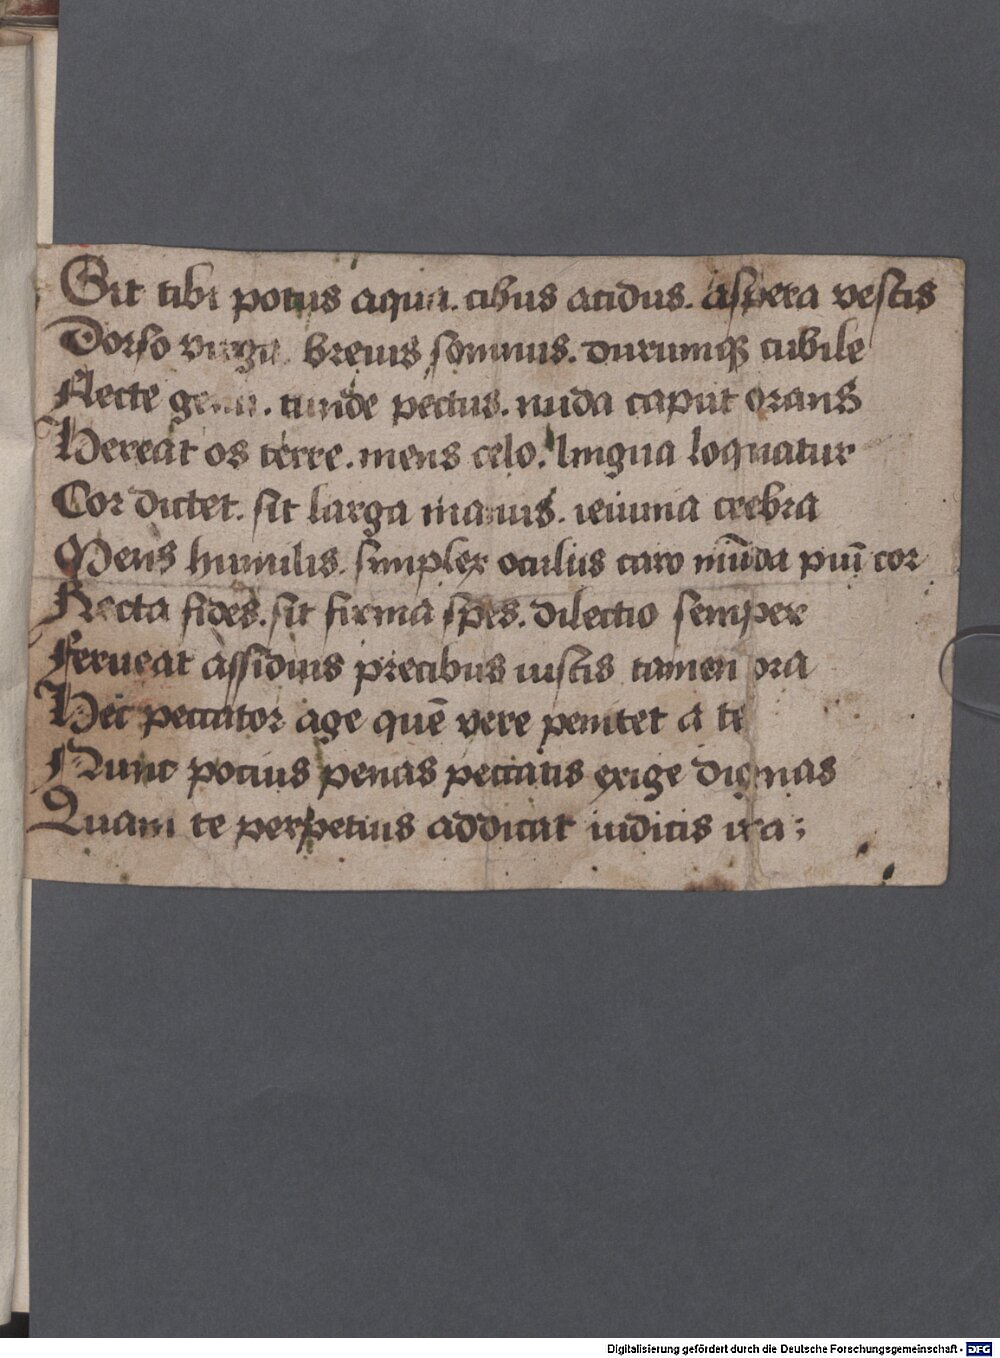 Sit tibi potus aqua. cibus acidus. aspera vestis
Dorso virga. brevis somnus. durumqꝫ cubile
Flecte genu. tunde pectus. nuda caput orans
Hereat os terre. mens celo. lingua loquatur
Cor dictet. sit larga manus. ieiunia crebra
Mens humilis. simplex oculus caro mūda piū cor
Recta fides. sit firma spes. dilectio semper
Ferueat assiduis precibus iustis tamen ora
Hec peccator age quē vere penitet a te
Nunc pocius penas peccatis exige dignas
Quam te perpetuis addicat iudicis ira;
Digitalisierung gefördert durch die Deutsche Forschungsgemeinschaft - DFG